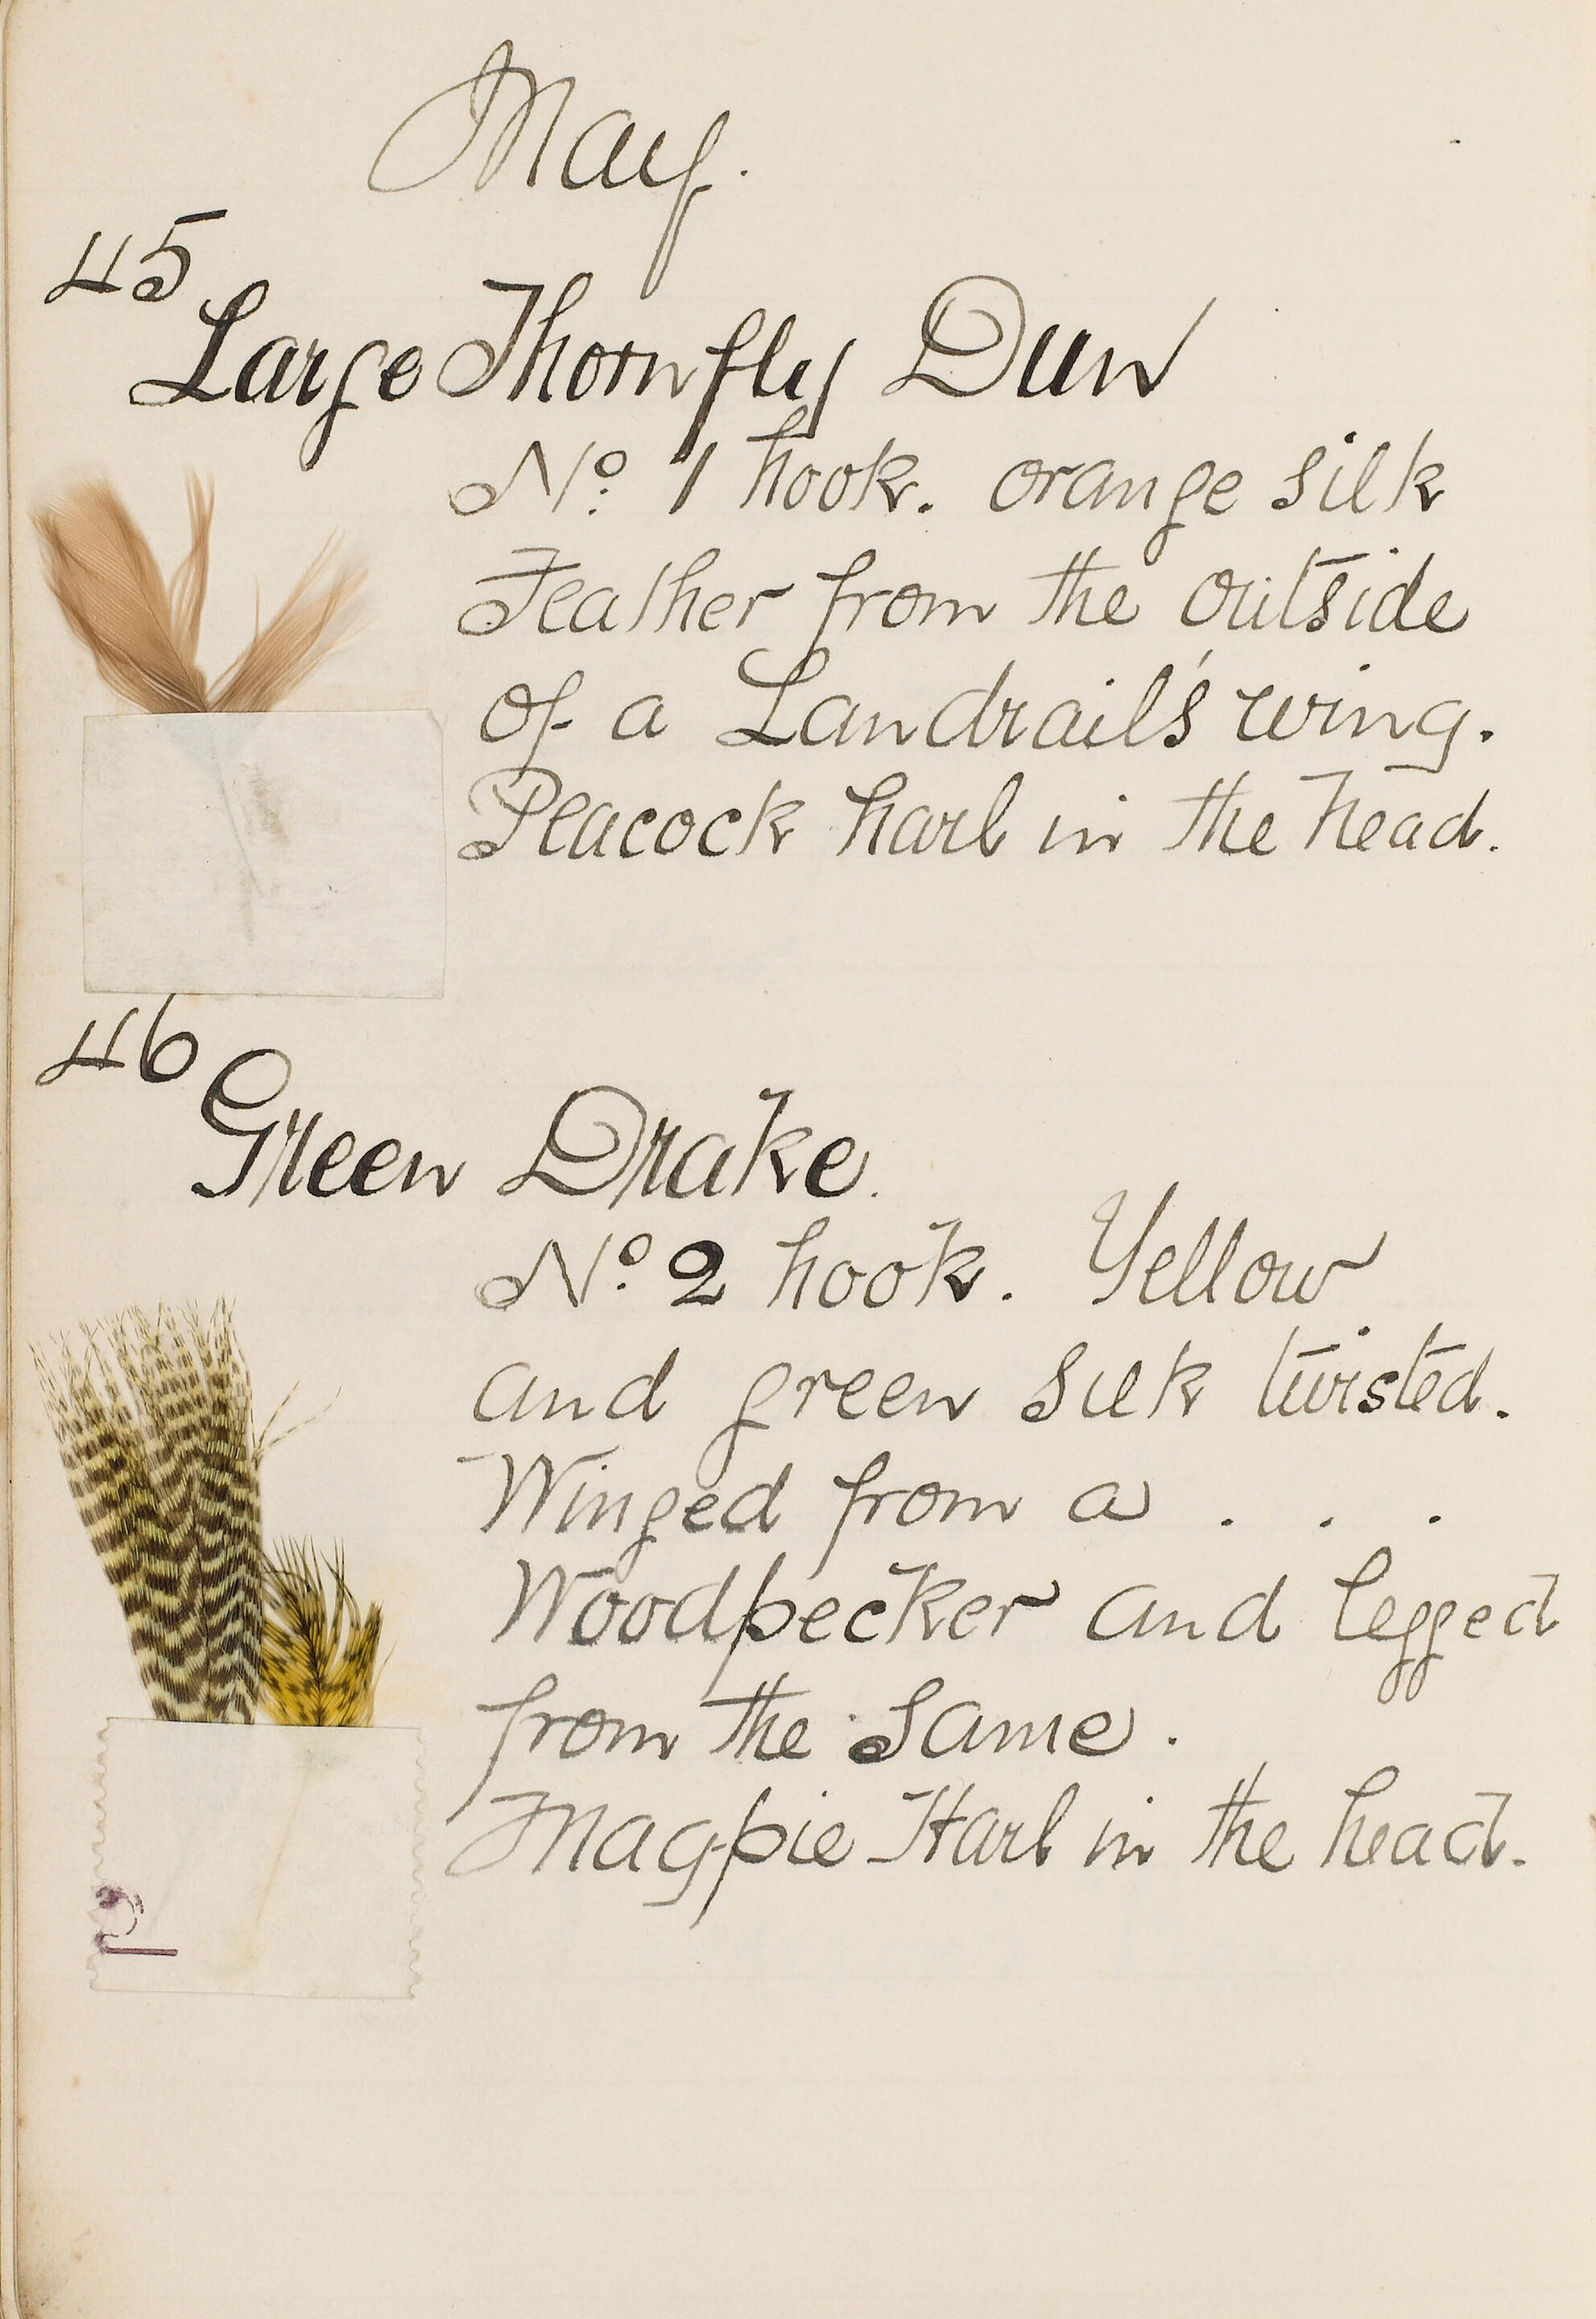 May.
45
Large Thornfly Dun
No. 1 hook. orange silk
Feather from the outside
of a Landrail's wing.
Peacock harl in the head.
46
Green Drake.
No. 2 hook. Yellow
and green silk twisted.
Winged from a . . .
Woodpecker and legged
from the same.
Magpie Harl in the head.